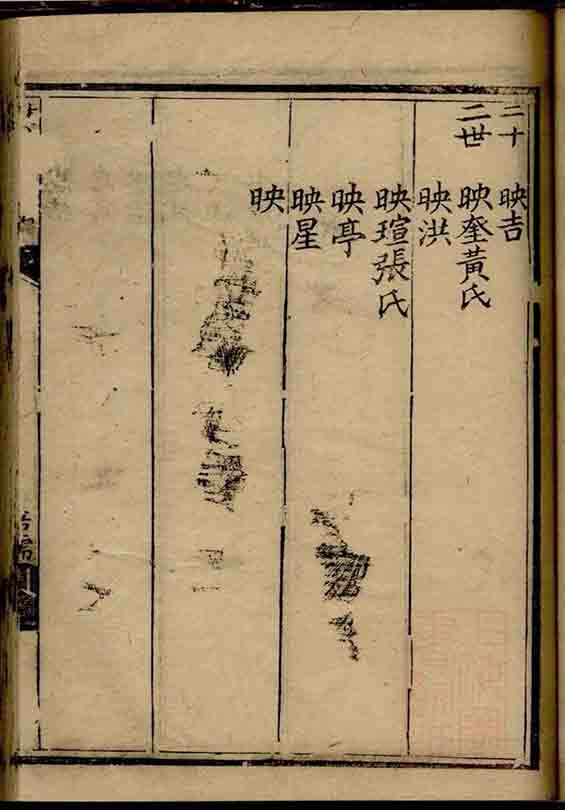 二十
二世
映吉
映奎黃氏
映洪
映瑄張氏
映亭
映星
映